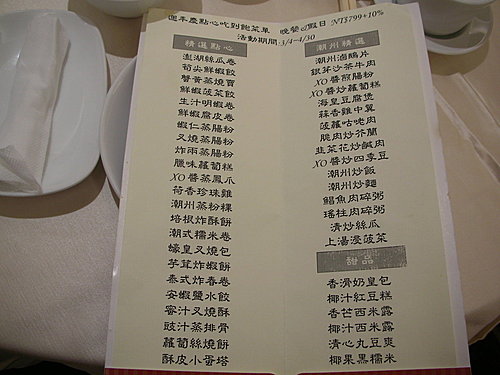 週年慶點心吃到飽菜單 晚餐&假日 NT$799+10%
活動期間:3/4-4/30
精選點心
澎湖絲瓜卷
筍尖鮮蝦餃
蟹黃蒸燒賣
鮮蝦菠菜餃
生汁明蝦卷
鮮蝦腐皮卷
蝦仁蒸腸粉
叉燒蒸腸粉
炸兩蒸腸粉
臘味蘿蔔糕
XO醬蒸鳳爪
荷香珍珠雞
潮州蒸粉粿
培根炸酥餅
潮式糯米卷
蠔皇叉燒包
芋茸炸蝦餅
泰式炸春卷
安蝦鹽水餃
蜜汁叉燒酥
豉汁蒸排骨
蘿蔔絲燒餅
酥皮小蛋塔
潮州精選
潮州滷鴨片
銀芽沙茶牛肉
XO醬煎腸粉
XO醬炒蘿蔔糕
海皇豆腐煲
蒜香雞中翼
菠蘿咕咾肉
脆肉炒芥蘭
韭菜花炒鹹肉
XO醬炒四季豆
潮州炒飯
潮州炒麵
鯧魚肉碎粥
瑤柱肉碎粥
清炒絲瓜
上湯浸菠菜
甜品
香滑奶皇包
椰汁紅豆糕
香芒西米露
椰汁西米露
清心丸豆爽
椰果黑糯米